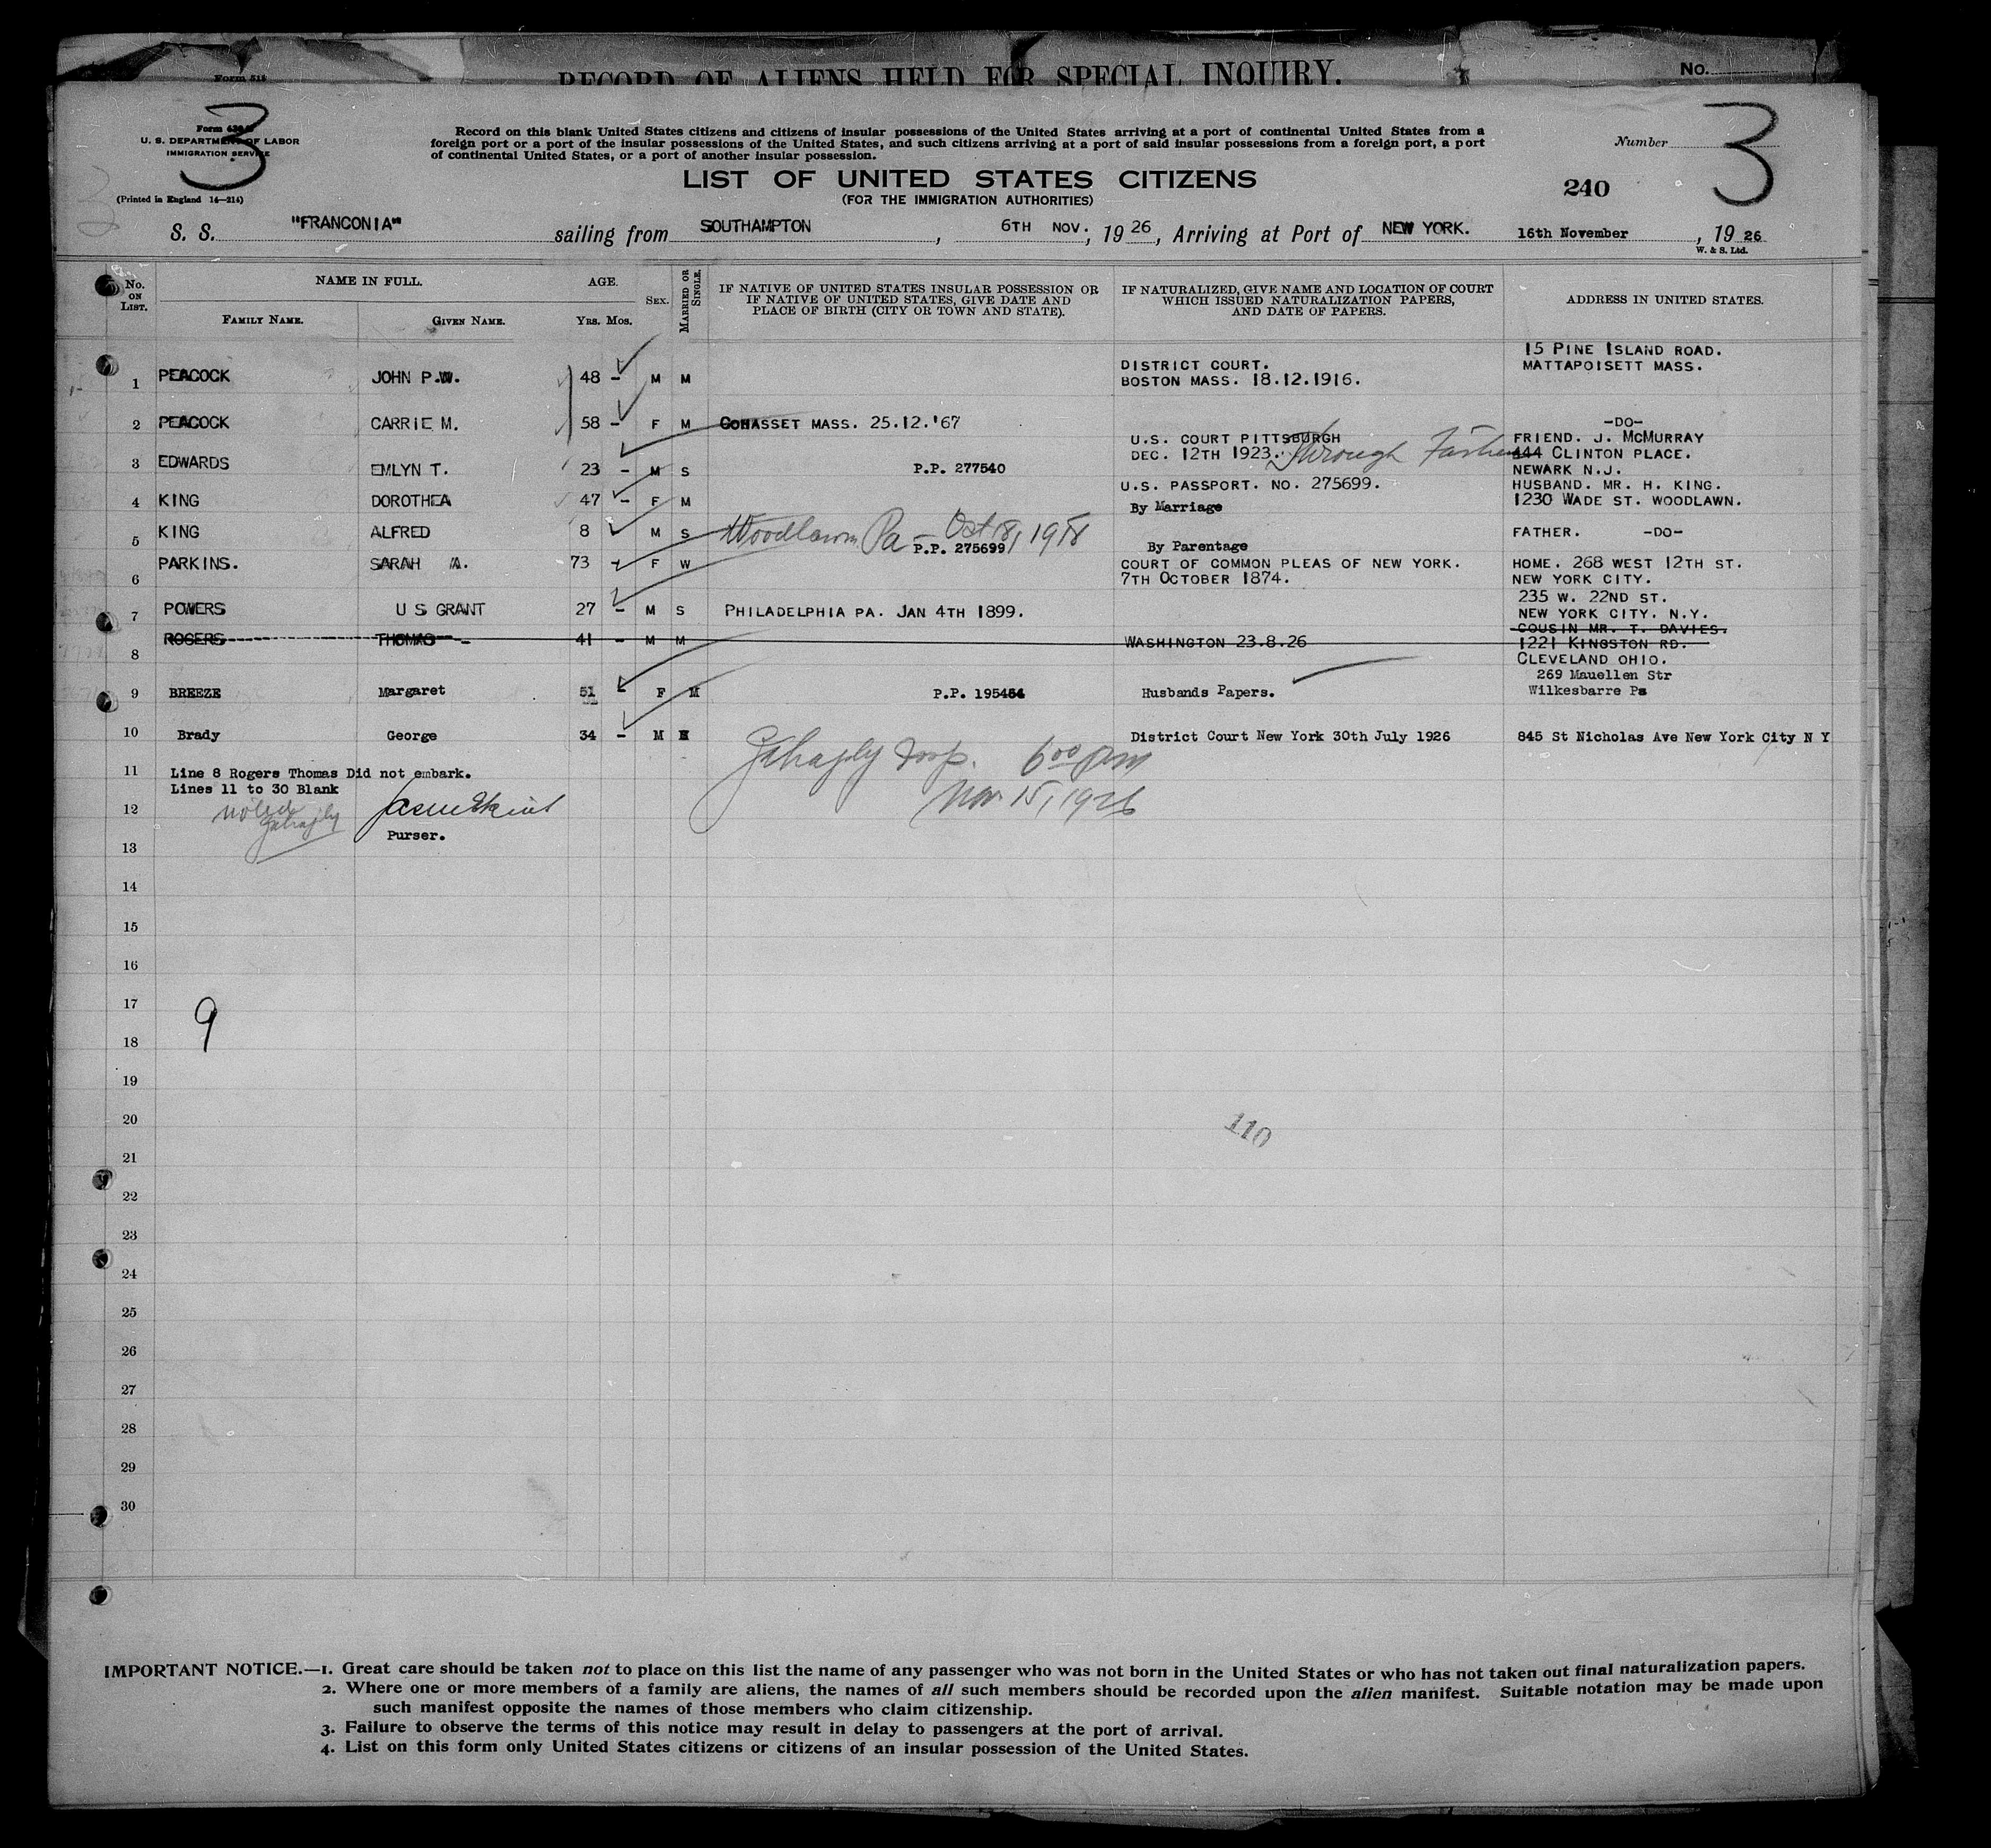 Form 515
RECORD OF ALIENS HELD FOR SPECIAL INQUIRY.
No.
3
3
Form
U. S. DEPARTMENT OF LABOR
IMMIGRATION SERVICE
(Printed in England 14—214)
Record on this blank United States citizens and citizens of insular possessions of the United States arriving at a port of continental United States from a
foreign port or a port of the insular possessions of the United States, and such citizens arriving at a port of said insular possessions from a foreign port, a port
of continental United States, or a port of another insular possession.
Number
LIST OF UNITED STATES CITIZENS
(FOR THE IMMIGRATION AUTHORITIES)
240
S. S. "FRANCONIA" sailing from SOUTHAMPTON, 6TH NOV., 1926, Arriving at Port of NEW YORK. 16th November, 1926
W. & S. Ltd.
No. ON LIST.
NAME IN FULL.
FAMILY NAME.
GIVEN NAME.
AGE.
YRS. MOS.
SEX.
MARRIED OR SINGLE.
IF NATIVE OF UNITED STATES INSULAR POSSESSION OR
IF NATIVE OF UNITED STATES, GIVE DATE AND
PLACE OF BIRTH (CITY OR TOWN AND STATE).
IF NATURALIZED, GIVE NAME AND LOCATION OF COURT
WHICH ISSUED NATURALIZATION PAPERS,
AND DATE OF PAPERS.
ADDRESS IN UNITED STATES.
1 PEACOCK JOHN P.W. 48 – M M
DISTRICT COURT.
BOSTON MASS. 18.12.1916.
15 PINE ISLAND ROAD.
MATTAPOISETT MASS.
2 PEACOCK CARRIE M. 58 – F M COHASSET MASS. 25.12.'67
-DO-
3 EDWARDS EMLYN T. 23 – M S P.P. 277540
U.S. COURT PITTSBURGH
DEC. 12TH 1923. Through Father
FRIEND. J. MCMURRAY
444 CLINTON PLACE.
NEWARK N.J.
4 KING DOROTHEA 47 – F M
U.S. PASSPORT. NO. 275699.
By Marriage
HUSBAND. MR. H. KING.
1230 WADE ST. WOODLAWN.
5 KING ALFRED 8 M S Woodlawn Pa – Oct 18, 1918
P.P. 275699
By Parentage
FATHER. -DO-
6 PARKINS. SARAH A. 73 – F W
COURT OF COMMON PLEAS OF NEW YORK.
7TH OCTOBER 1874.
HOME. 268 WEST 12TH ST.
NEW YORK CITY.
7 POWERS U S GRANT 27 – M S PHILADELPHIA PA. JAN 4TH 1899.
235 W. 22ND ST.
NEW YORK CITY. N.Y.
8 ROGERS THOMAS 41 – M M WASHINGTON 23.8.26
COUSIN MR. T. DAVIES.
1221 KINGSTON RD.
CLEVELAND OHIO.
9 BREEZE Margaret 51 – F M P.P. 195454 Husbands Papers.
269 Mauellen Str
Wilkesbarre Pa
10 Brady George 34 – M District Court New York 30th July 1926 845 St Nicholas Ave New York City N Y
11 Line 8 Rogers Thomas Did not embark.
Lines 11 to 30 Blank
6 00 pm
Nov 15, 1926
12
noted
Purser.
13
14
15
16
17
9
18
19
20
110
21
22
23
24
25
26
27
28
29
30
IMPORTANT NOTICE.—1. Great care should be taken not to place on this list the name of any passenger who was not born in the United States or who has not taken out final naturalization papers.
2. Where one or more members of a family are aliens, the names of all such members should be recorded upon the alien manifest. Suitable notation may be made upon
such manifest opposite the names of those members who claim citizenship.
3. Failure to observe the terms of this notice may result in delay to passengers at the port of arrival.
4. List on this form only United States citizens or citizens of an insular possession of the United States.